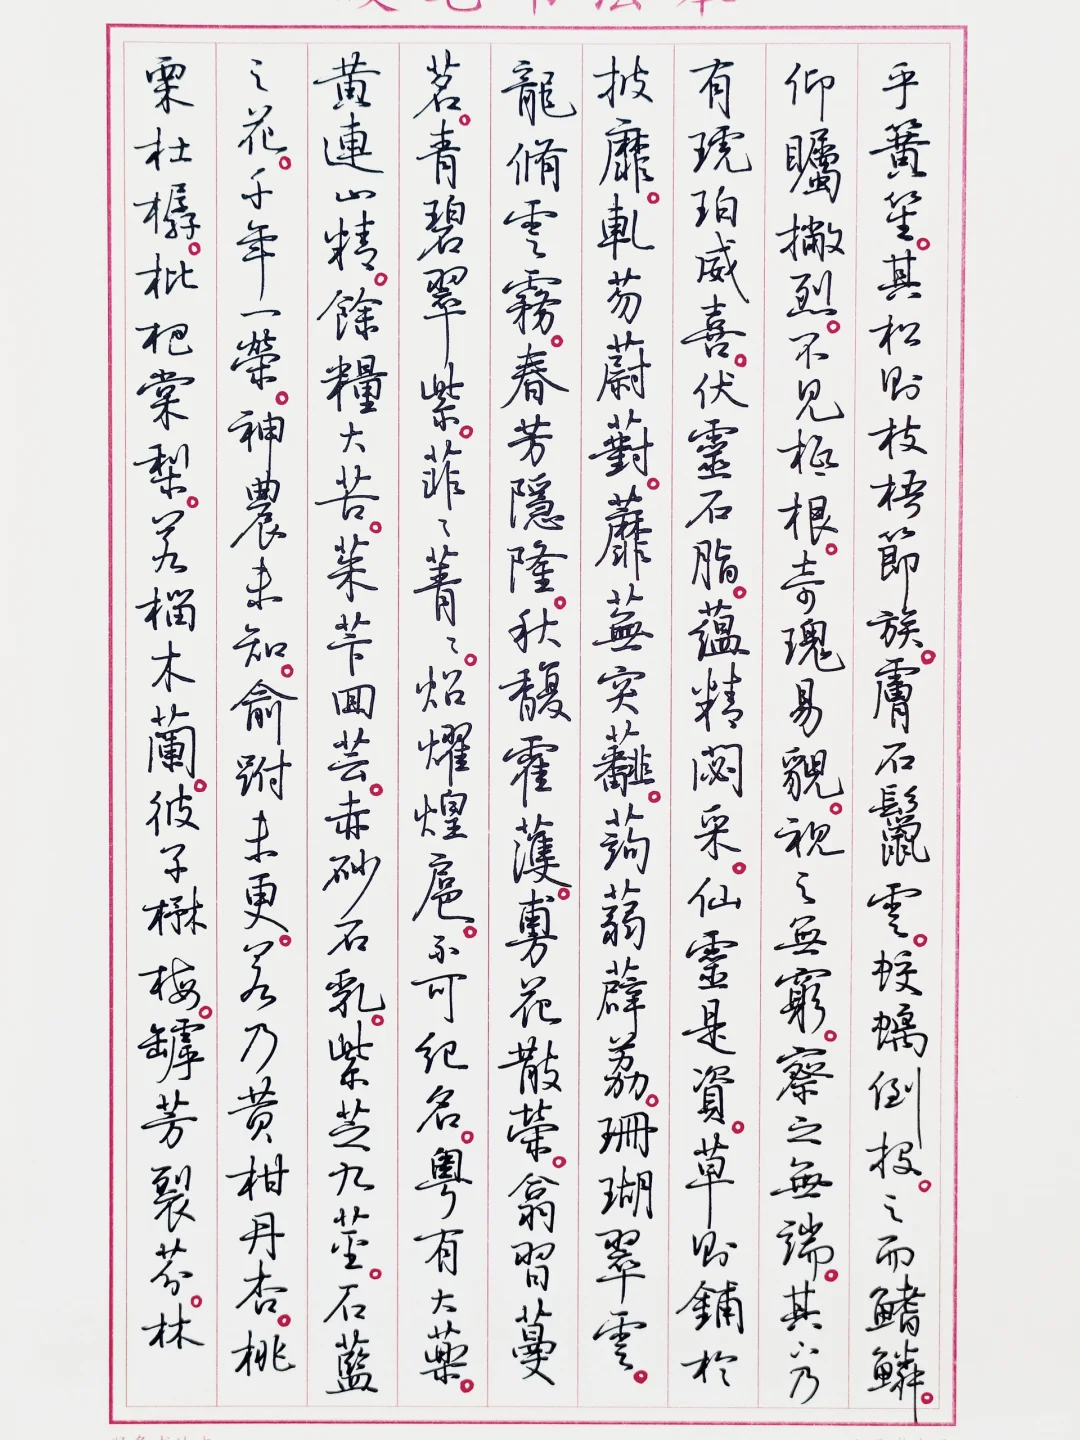 硬笔书法本
乎簧笙。其松则枝梧節族。膚石鬣雲。蛟螭倒投。之而鰭鱗。
仰矚撇烈。不見柢根。奇瑰易貌。視之無窮。察之無端。其下乃
有琥珀威喜。伏靈石脂。蘊精閟采。仙靈是資。草则鋪於
披靡。軋芴蔚薱。蘼蕪突虈。蒟蒻薜荔。珊瑚翠雲。
龍脩雲霧。春芳隱隆。秋馥霍蒦。旉花散榮。翕習蔓
茗。青碧翠紫。菲〻菁〻。炤燿煌扈。不可紀名。粤有大藥。
黄連山精。餘糧大苦。茱苄回芸。赤砂石乳。紫芝九莖。石藍
之花。千年一榮。神農未知。俞跗未更。若乃黄柑丹杏。桃
栗杜樼。枇杷棠梨。若榴木蘭。彼子楙梅。罅芳裂芬。林